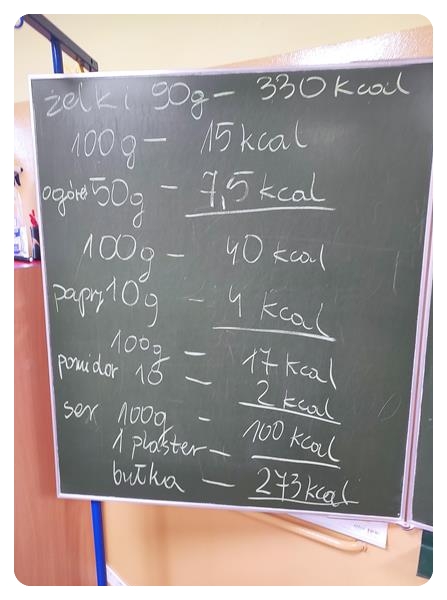 żelki 90g - 330 kcal
100g - 15 kcal
ogórek 50g - 7,5 kcal
100g - 40 kcal
papry 10g - 4 kcal
100g - 17 kcal
pomidor 10 - 2 kcal
ser 100g -
1 plaster - 100 kcal
bułka - 273 kcal